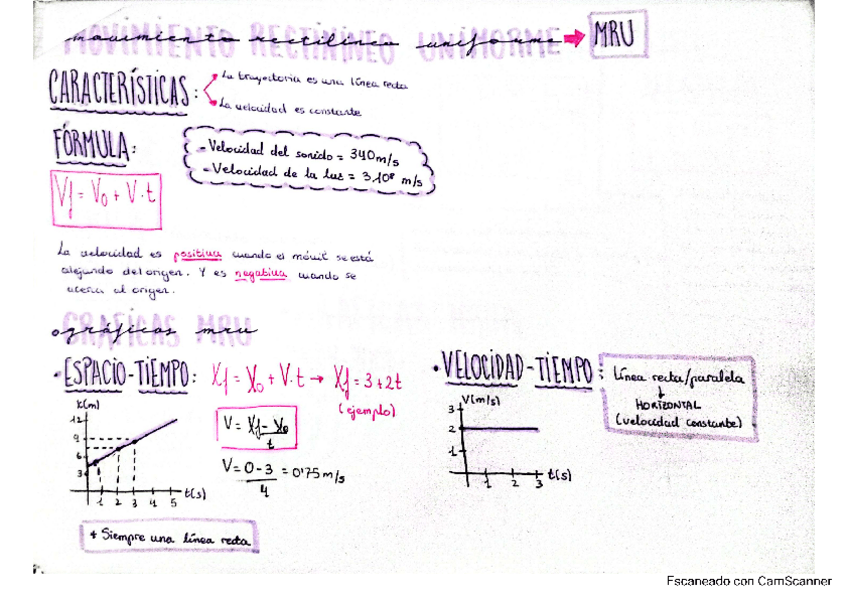 movimiento rectilíneo uniforme → MRU
CARACTERÍSTICAS:
La trayectoria es una línea recta
La velocidad es constante
FÓRMULA:
- Velocidad del sonido = 340 m/s
- Velocidad de la luz = 3.10⁸ m/s
Vf = V0 + V · t
La velocidad es positiva cuando el móvil se está
alejando del origen. Y es negativa cuando se
acerca al origen.
gráficas mru
• ESPACIO-TIEMPO: Xf = X0 + V·t → Xf = 3+2t
(ejemplo)
X(m)
12
9
6
3
1 2 3 4 5 t(s)
V = Xf - X0 / t
V = 0-3 / 4 = 0'75 m/s
* Siempre una línea recta
• VELOCIDAD-TIEMPO:
Línea recta/paralela
↓
HORIZONTAL
(velocidad constante)
V(m/s)
3
2
1
1 2 3 t(s)
Escaneado con CamScanner